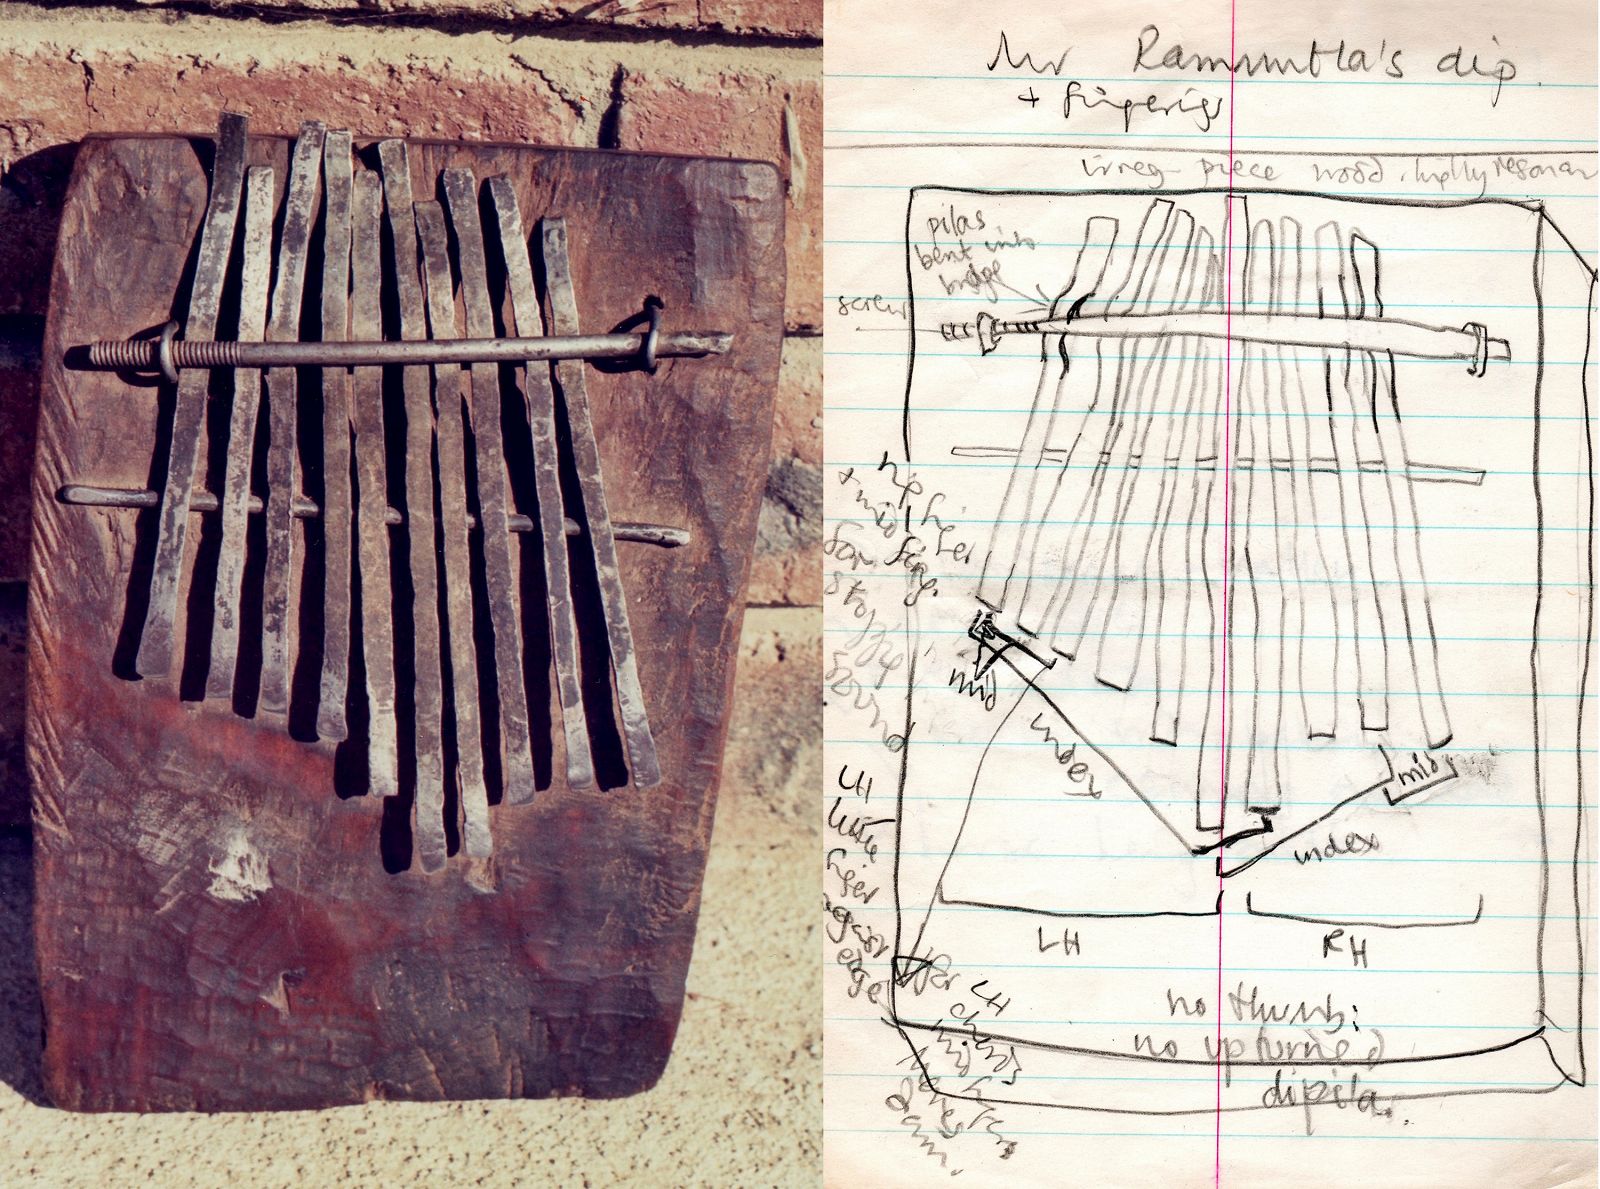 Mr Ramumtla's dip.
+ fingerigs
irreg piece wood. highly resonan
pilas
bent into
bridge
screw
+ mid fing.
for
stoppig
sound
mid
index
mid
index
LH
little
finger
against
edge
LH
RH
LH
no thumb:
no upturned
dipila.